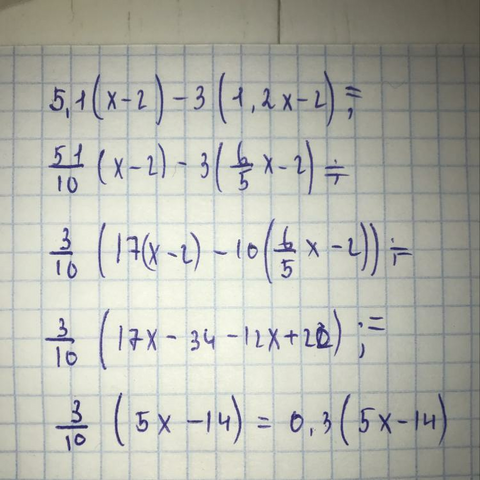 5,1(x-2) - 3(1,2x-2) ;=
51/10 (x-2) - 3(6/5 x-2) ;=
3/10 (17(x-2) - 10(6/5 x-2)) ;=
3/10 (17x - 34 - 12x + 20) ;=
3/10 (5x - 14) = 0,3(5x-14)